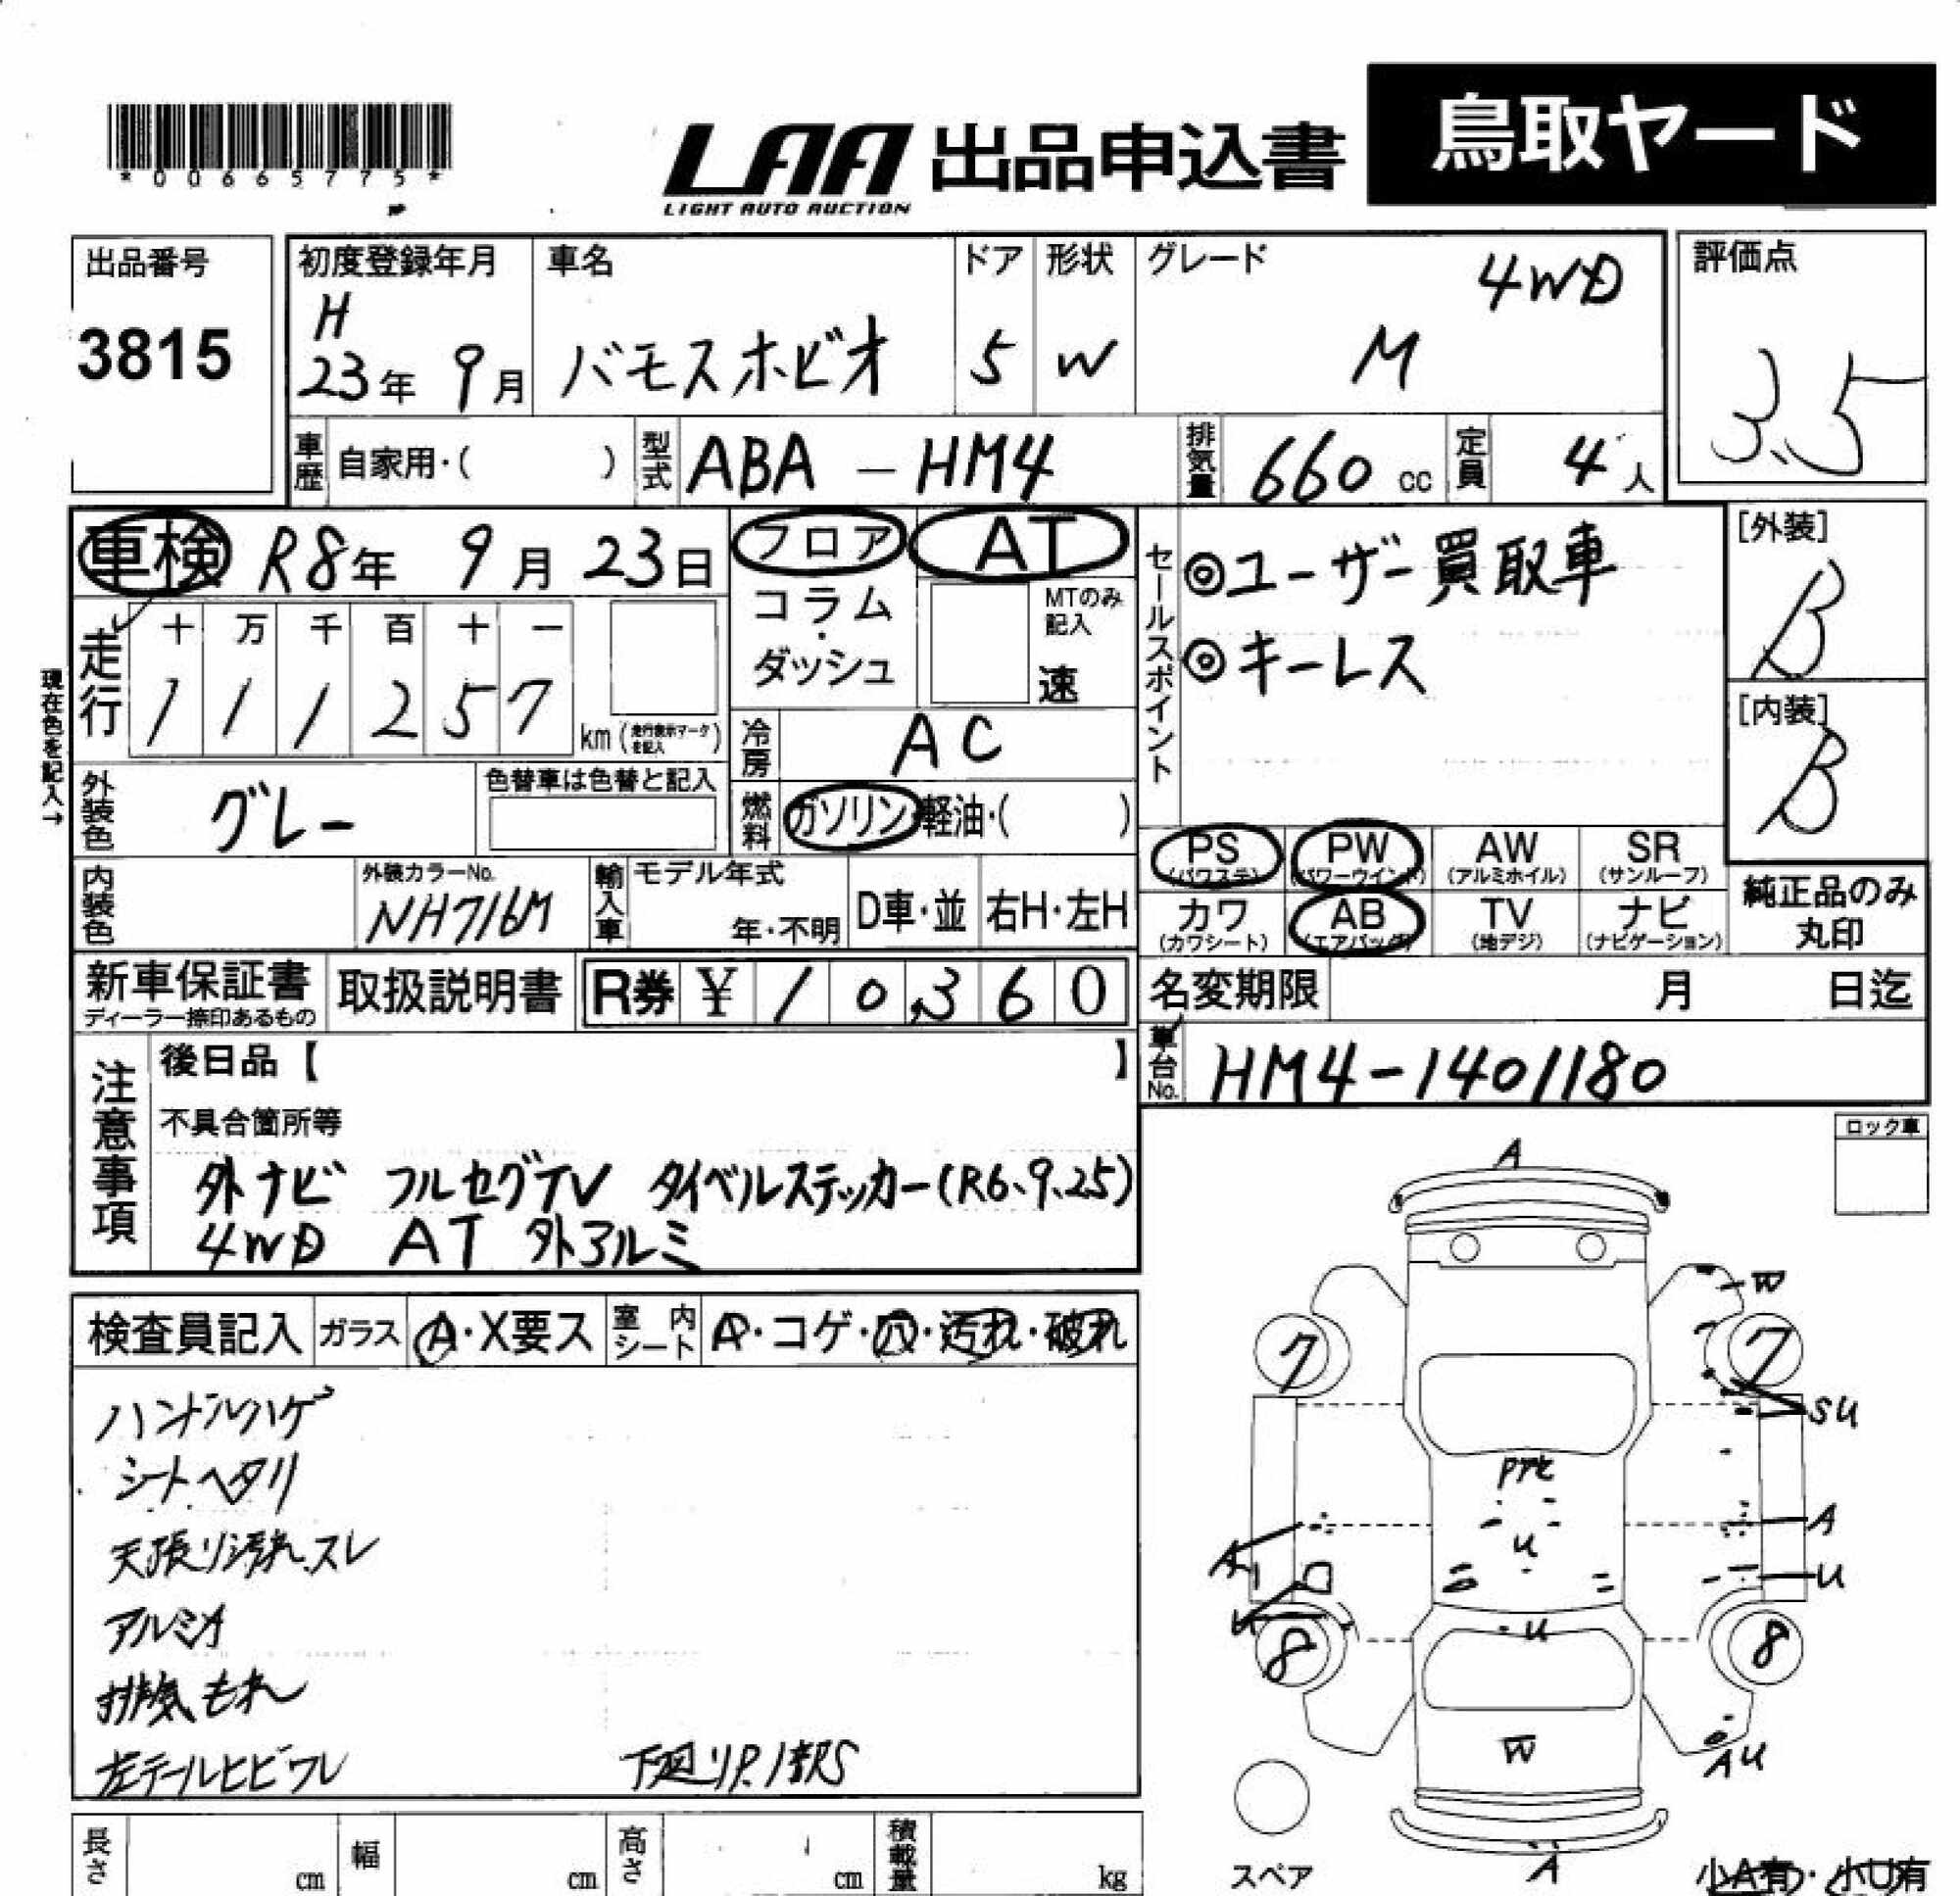 *00665775*
LAA 出品申込書 鳥取ヤード
LIGHT AUTO AUCTION
出品番号 初度登録年月 車名 ドア 形状 グレード 4WD 評価点
H
3815 23年 9月 バモスホビオ 5 W M 3.5
車歴 自家用・( ) 型式 ABA-HM4 排気量 660 cc 定員 4人
車検 R8年 9月 23日 フロア AT
コラム・ダッシュ MTのみ記入 速
セールスポイント ◎ユーザー買取車
◎キーレス
[外装] B
[内装] B
現在色を記入→
走行 十 万 千 百 十 一
1 1 1 2 5 7 km (走行表示マークを記入)
冷房 AC
外装色 グレー 色替車は色替と記入
燃料 ガソリン・軽油・( )
PS (パワステ) PW (パワーウインド) AW (アルミホイル) SR (サンルーフ)
カワ (カワシート) AB (エアバッグ) TV (地デジ) ナビ (ナビゲーション)
純正品のみ
丸印
内装色 外装カラーNo. NH716M 輸入車 モデル年式 年・不明 D車・並 右H・左H
新車保証書 ディーラー捺印あるもの 取扱説明書 R券 ¥ 10,360
名変期限 月 日迄
車台No. HM4-1401180
注意事項 後日品【 】
不具合箇所等
外ナビ フルセグTV タイベルステッカー(R6、9.25)
4WD AT 外アルミ
ロック車
検査員記入 ガラス A・X要ス 室内シート A・コゲ・穴・汚れ・破れ
ハンドルハゲ
シートヘタリ
天張り汚れ.スレ
アルミA
排気もれ
左テールヒビワレ 下廻りP.1部S
A
W
7 7
SU
U
A A
U
U
8 8
W
AU
A
スペア 小A有・小U有
長さ cm 幅 cm 高さ cm 積載量 kg